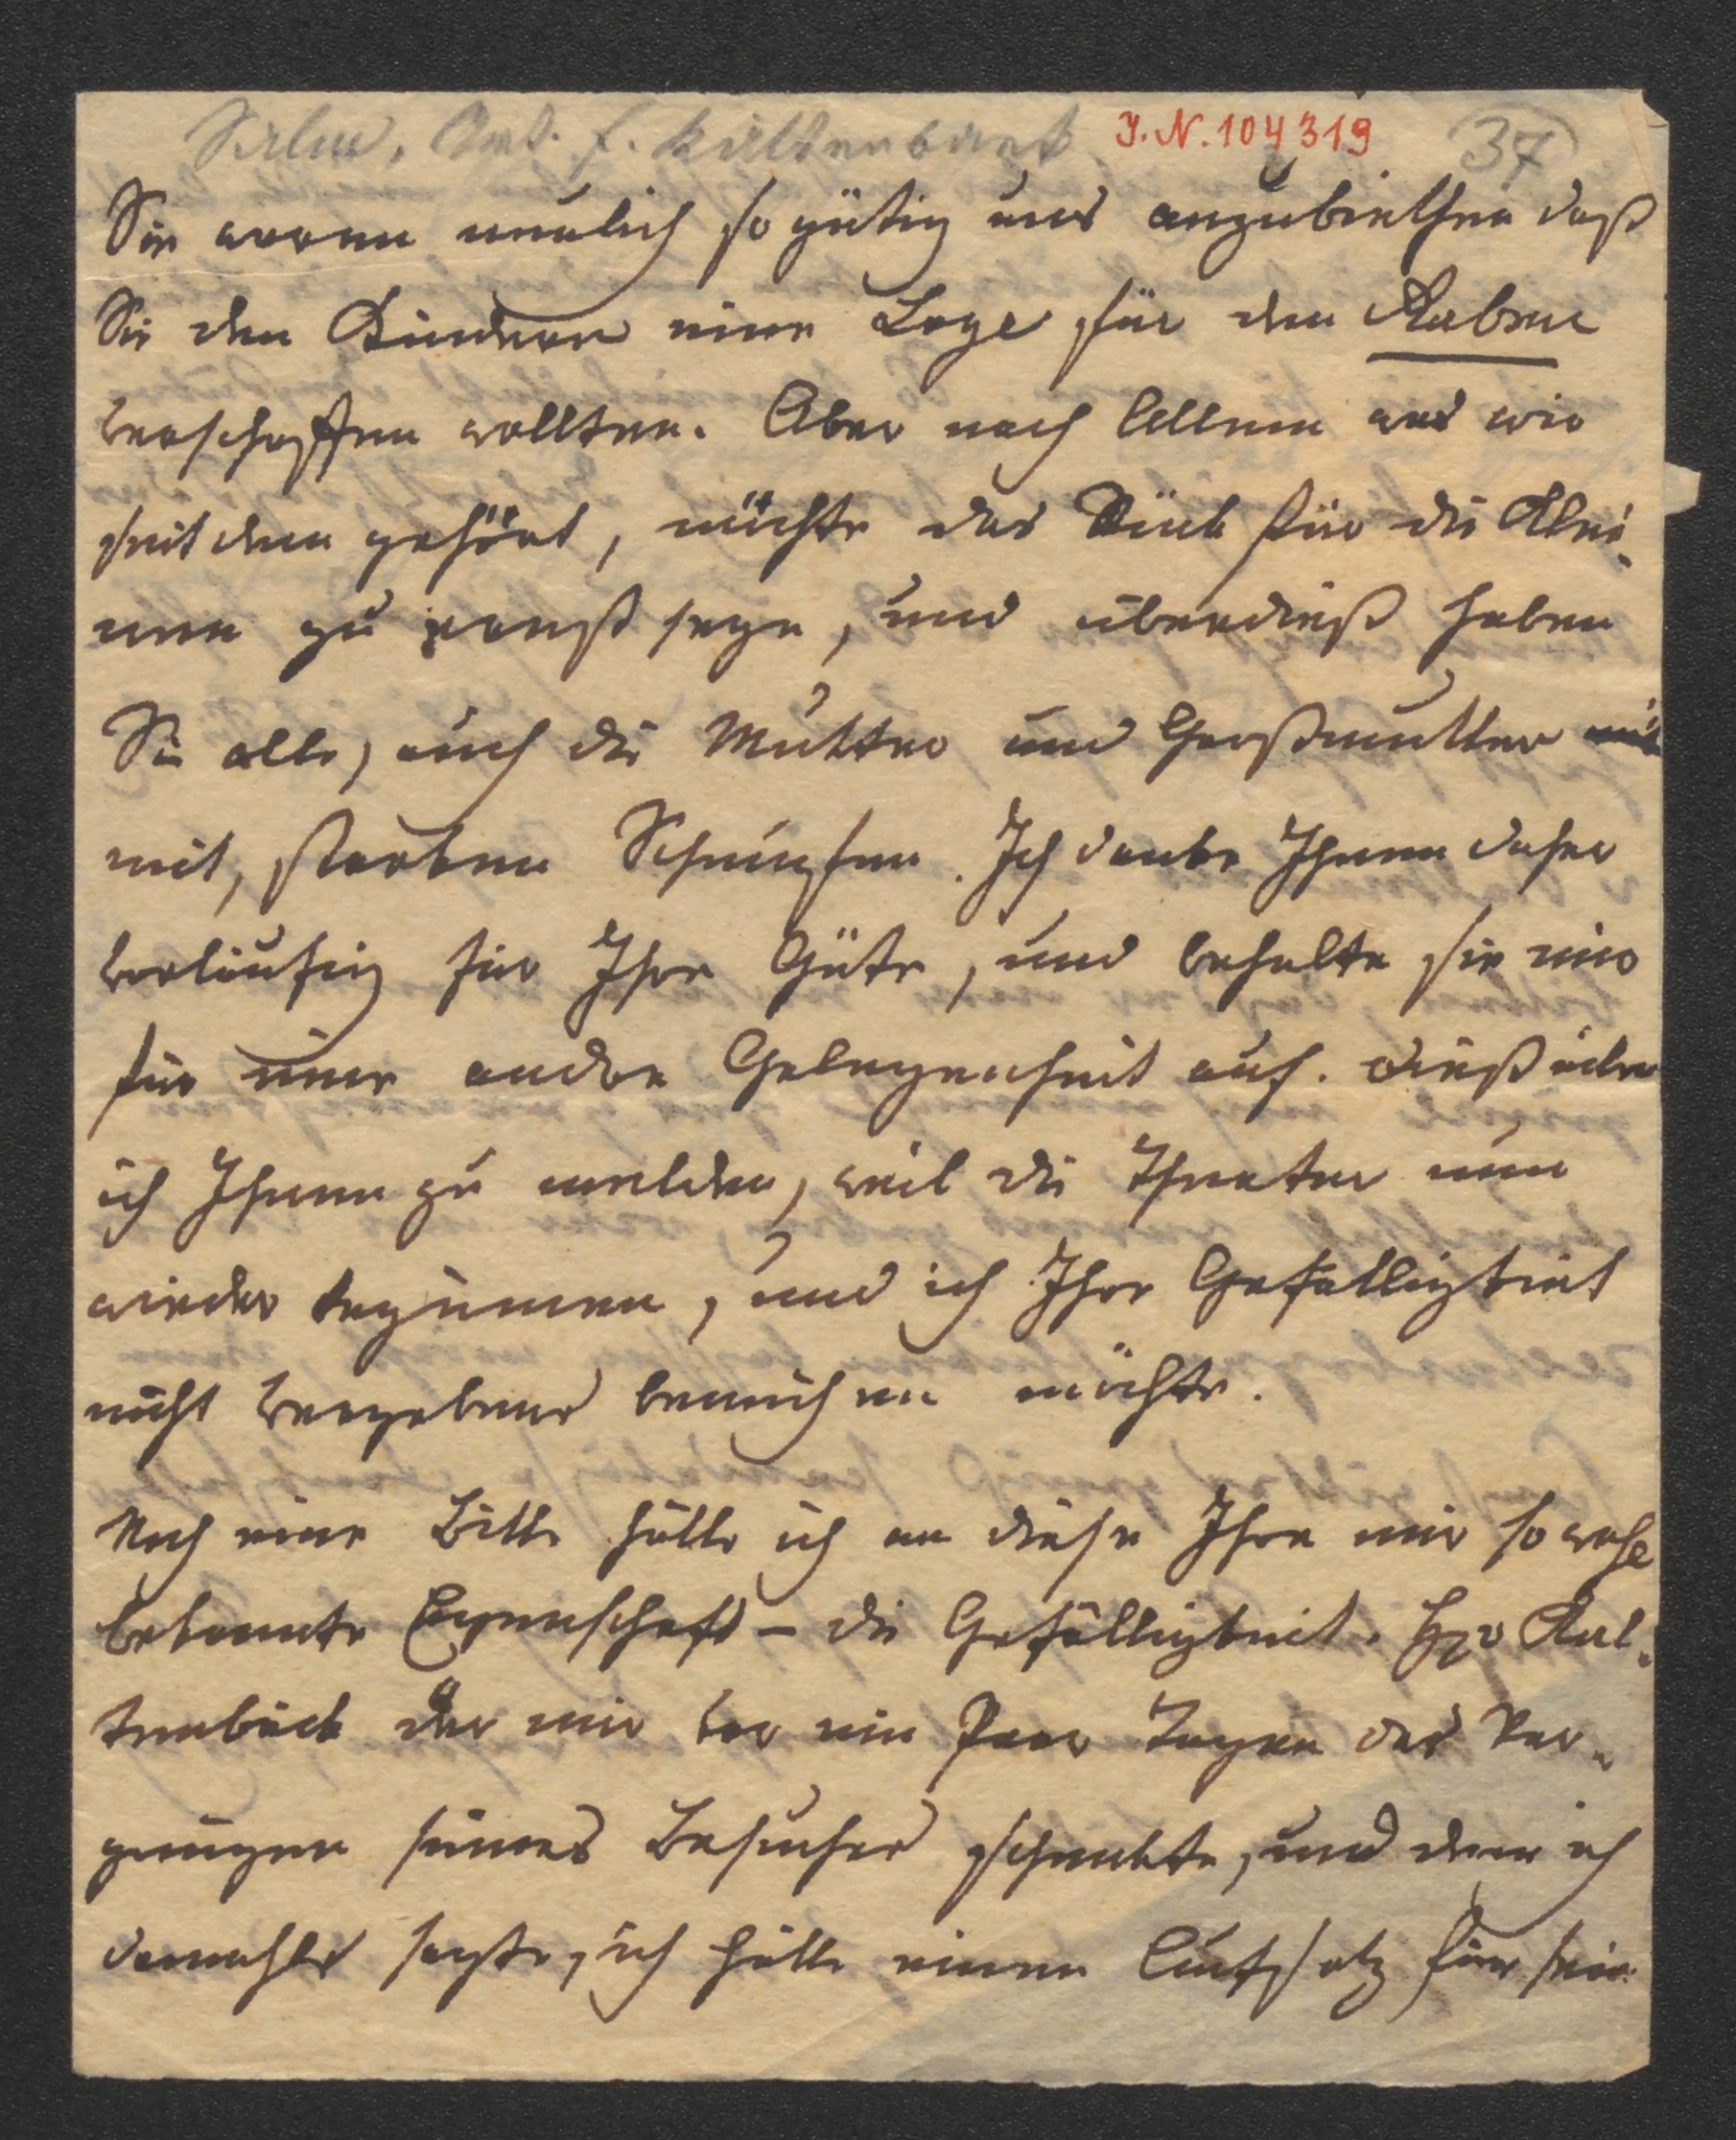 J. N. 104319 37
Sie waren neulich so gütig uns anzubiethen daß
Sie den Kindern eine Loge für den Raben
verschaffen wollten. Aber nach Allem was wir
seitdem gehört, möchte das Stück für die Klei-
nen zu ernst seyn, und überdieß haben
Sie alle, auch die Mutter und Großmutter
mit, starken Schnupfen. Ich danke Ihnen daher
vorläufig für Ihre Güte, und behalte sie mir
für eine andre Gelegenheit auf. Dieß eile
ich Ihnen zu melden, weil die Theater nun
wieder beginnen, und ich Ihre Gefälligkeit
nicht vergebens bemühen möchte.
Noch eine Bitte hätte ich an diese Ihre mir so wohl
bekannte Eigenschaft – die Gefälligkeit. Hr Kal-
tenbäck der mir vor ein Paar Tagen das Ver-
gnügen seines Besuches schenkte, und dem ich
damahls sagte, ich hätte einen Aufsatz für sein